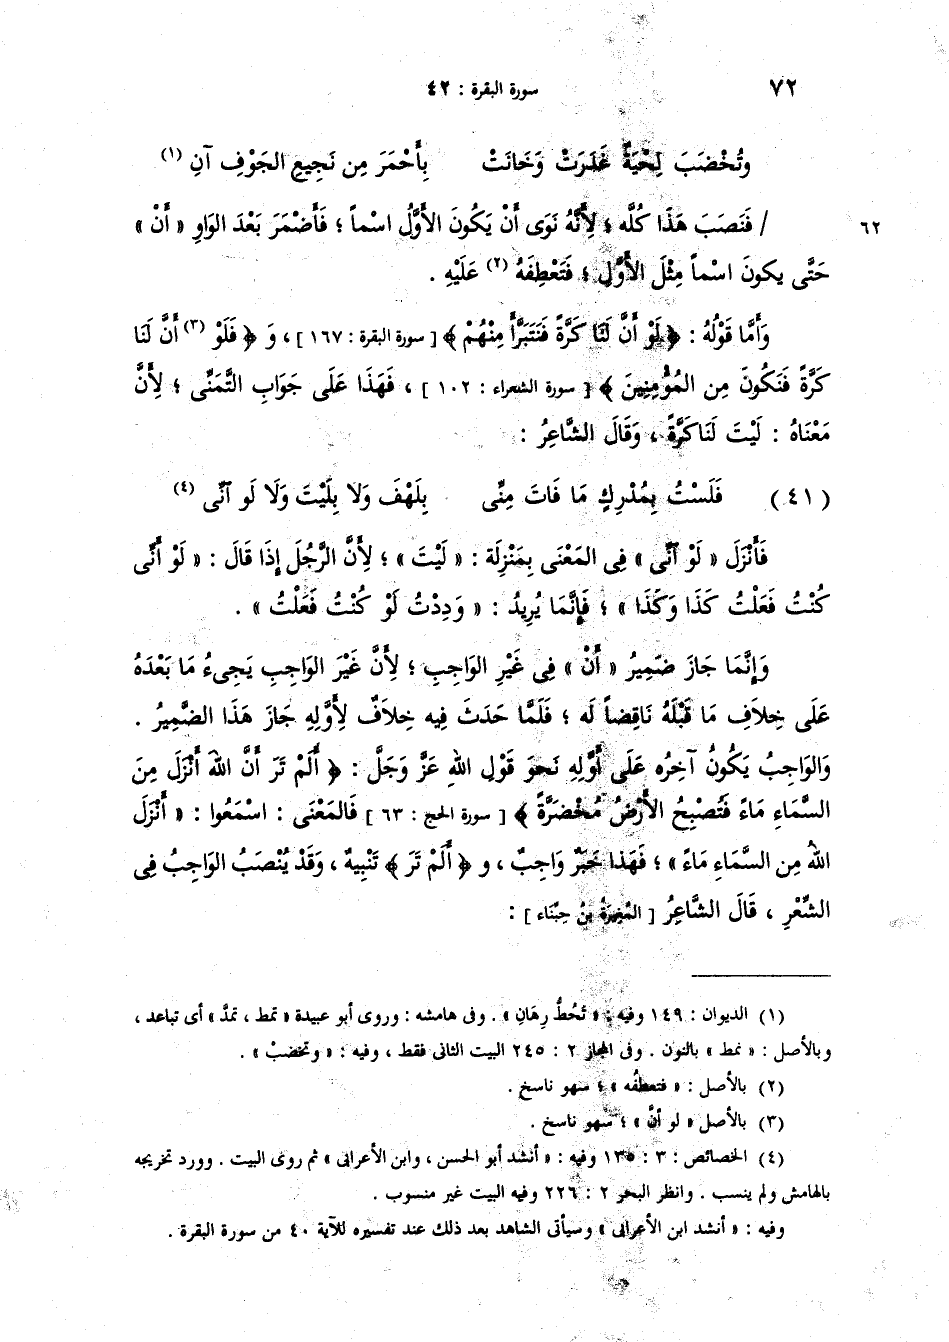 ٧٢ سورة البقرة : ٤٢
وتُخْضَبَ لِحْيَةٌ غَدَرَتْ وَخَانَتْ بِأَحْمَرَ مِن نَجِيعِ الجَوْفِ آنِ (١)
٦٢ / فَنَصَبَ هَذَا كُلَّه ؛ لِأَنَّهُ نَوَى أَنْ يَكُونَ الأَوَّلُ اسماً ؛ فَأَضْمَرَ بَعْدَ الوَاوِ « أَنْ »
حَتَّى يكونَ اسْماً مِثْلَ الأَوَّلِ ؛ فَتَعْطِفَهُ (٢) عَلَيْهِ .
وَأَمَّا قَوْلُهُ : ﴿ لَوْ أَنَّ لَنَا كَرَّةً فَنَتَبَرَّأَ مِنْهُمْ ﴾ [ سورة البقرة : ١٦٧ ] ، وَ ﴿ فَلَوْ (٣) أَنَّ لَنَا
كَرَّةً فَنَكُونَ مِن المُؤْمِنِينَ ﴾ [ سورة الشعراء : ١٠٢ ] ، فَهَذَا عَلَى جَوَابِ التَّمَنِّى ؛ لِأَنَّ
مَعْنَاهُ : لَيْتَ لَنَا كَرَّةً ، وَقَالَ الشَّاعِرُ :
(٤١) فَلَسْتُ بِمُدْرِكٍ مَا فَاتَ مِنِّى بِلَهْفَ وَلا بِلَيْتَ وَلَا لَو آنِّى (٤)
فَأَنْزَلَ « لَوْ آنِّى » فِى المَعْنَى بِمَنْزِلَة : « لَيْتَ » ؛ لِأَنَّ الرَّجُلَ إِذَا قَالَ : « لَوْ أَنِّى
كُنْتُ فَعَلْتُ كَذَا وَكَذَا » ؛ فَإِنَّمَا يُرِيدُ : « وَدِدْتُ لَوْ كُنْتُ فَعَلْتُ » .
وَإِنَّمَا جَازَ ضَمِيرُ « أَنْ » فِى غَيْرِ الوَاجِبِ ؛ لِأَنَّ غَيْرَ الوَاجِبِ يَجِىءُ مَا بَعْدَهُ
عَلَى خِلاَفِ مَا قَبْلَهُ نَاقِضاً لَه ؛ فَلَمَّا حَدَثَ فِيه خِلاَفٌ لِأَوَّلِهِ جَازَ هَذَا الضَّمِيرُ .
وَالوَاجِبُ يَكُونُ آخِرُه عَلَى أَوَّلِهِ نَحوَ قَوْلِ اللهِ عَزَّ وَجَلَّ : ﴿ أَلَمْ تَرَ أَنَّ اللهَ أَنْزَلَ مِنَ
السَّمَاءِ مَاءً فَتُصْبِحُ الأَرْضُ مُخْضَرَّةً ﴾ [ سورة الحج : ٦٣ ] فَالمَعْنَى : اسْمَعُوا : « أَنْزَلَ
اللهُ مِن السَّمَاءِ مَاءً » ؛ فَهَذَا خَبَرٌ وَاجِبٌ ، و ﴿ أَلَمْ تَرَ ﴾ تَنْبِيهٌ ، وَقَدْ يُنْصَبُ الوَاجِبُ فِى
الشِّعْرِ ، قَالَ الشَّاعِرُ [ المُغِيرَةُ بنُ حَبْنَاء ] :
(١) الديوان : ١٤٩ وفيه : « تَحُطُّ رِهَانِ » . وفى هامشه : وروى أبو عبيدة « تمط ، تمدّ » أى تباعد ،
وبالأصل : « نمط » بالنون . وفى المجاز ٢ : ٢٤٥ البيت الثانى فقط ، وفيه : « وتخضبْ » .
(٢) بالأصل : « فتعطفُه » ؛ سهو ناسخ .
(٣) بالأصل « لو أنَّ » ؛ سهو ناسخ .
(٤) الخصائص : ٣ : ١٣٥ وفيه : « أنشد أبو الحسن ، وابن الأعرابى » ثم روى البيت . وورد تخريجه
بالهامش ولم ينسب . وانظر البحر ٢ : ٢٢٦ وفيه البيت غير منسوب .
وفيه : « أنشد ابن الأعرابى » وسيأتى الشاهد بعد ذلك عند تفسيره للآية ٤٠ من سورة البقرة .